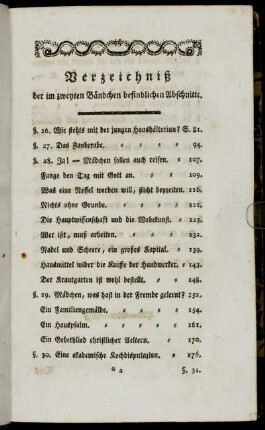 Verzeichniß
der im zweyten Bändchen befindlichen Abschnitte.
§. 26. Wie stehts mit der jungen Haushälterinn? S. 81.
§. 27. Das Zauberabc. 94.
§. 28. Ja! — Mädchen sollen auch reisen. 107.
Fange den Tag mit Gott an. 109.
Was eine Nessel werden will, sticht beyzeiten. 116.
Nichts ohne Grunde. 121.
Die Hauptwissenschaft und die Nebekunst. 123.
Wer ißt, muß arbeiten. 132.
Nadel und Scheere, ein großes Kapital. 139.
Hausmittel wider die Kniffe der Handwerker. 143.
Der Krautgarten ist wohl bestellt. 148.
§. 29. Mädchen, was hast in der Fremde gelernt? 152.
Ein Familiengemälde. 154.
Ein Hauspsalm. 161.
Ein Gebethlied christlicher Aeltern. 170.
§. 30. Eine akademische Kochdisputazion. 176.
* 2 §. 31.